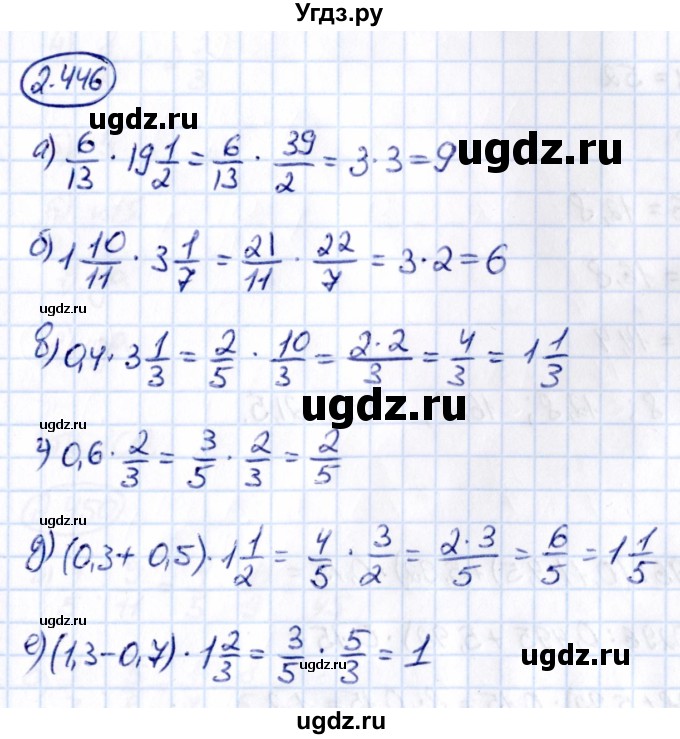 Угдз.ру
2.446
ugdz.ru
а) 6/13 · 19 1/2 = 6/13 · 39/2 = 3·3 = 9
ugdz.ru
ugdz.ru
б) 1 10/11 · 3 1/7 = 21/11 · 22/7 = 3·2 = 6
ugdz.ru
в) 0,4 · 3 1/3 = 2/5 · 10/3 = 2·2/3 = 4/3 = 1 1/3
ugdz.ru
ugdz.ru
г) 0,6 · 2/3 = 3/5 · 2/3 = 2/5
ugdz.ru
д) (0,3 + 0,5) · 1 1/2 = 4/5 · 3/2 = 2·3/5 = 6/5 = 1 1/5
ugdz.ru
е) (1,3 - 0,7) · 1 2/3 = 3/5 · 5/3 = 1
ugdz.ru
ugdz.ru
ugdz.ru